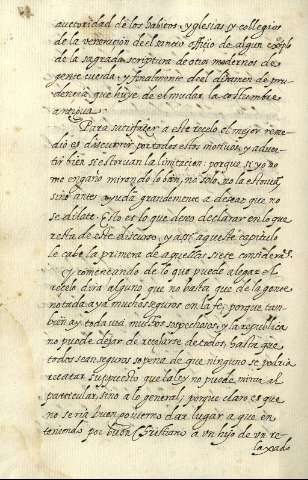 auctoridad de los habitos, yglesias, y collegios
de la veneracion de el sancto officio de algun exẽplo
de la sagrada scriptura de otos modernos de
gente cuerda y finalmente de el dictamen de pru
dencia que huye de el mudar la costumbre
antigua.
Para satisfazer a este recelo el mejor reme
dio es discurrir por todos estos motivos, y advert
tir bien si estorvan la limitacion: porque si yo no
me engaño mirandolo bien, no solo no la estorvã,
sino antes ayudã grandemente a desear que no
se dilate. Esto es lo que devo declarar en lo que
resta de este discurso, y assi aqueste capitulo
le cabe la primera de aquestas siete consideres.
Y comencando de lo que puede alegar el
recelo dira alguno que no basta que de la gente
notada aya muchos seguros en la fe, porque tam
bien ay todavia muchos sospechosos, y la republica
no puede dejar de recelarse de todos, hasta que
todos sean seguros so pena de que ninguno se podria
recatar, supuesto que la ley no puede mirar al
particular, sino a lo general; porque claro es que
no seria buen govierno dar lugar a que en
teniendo por buen Christiano a un hijo de un re
laxado